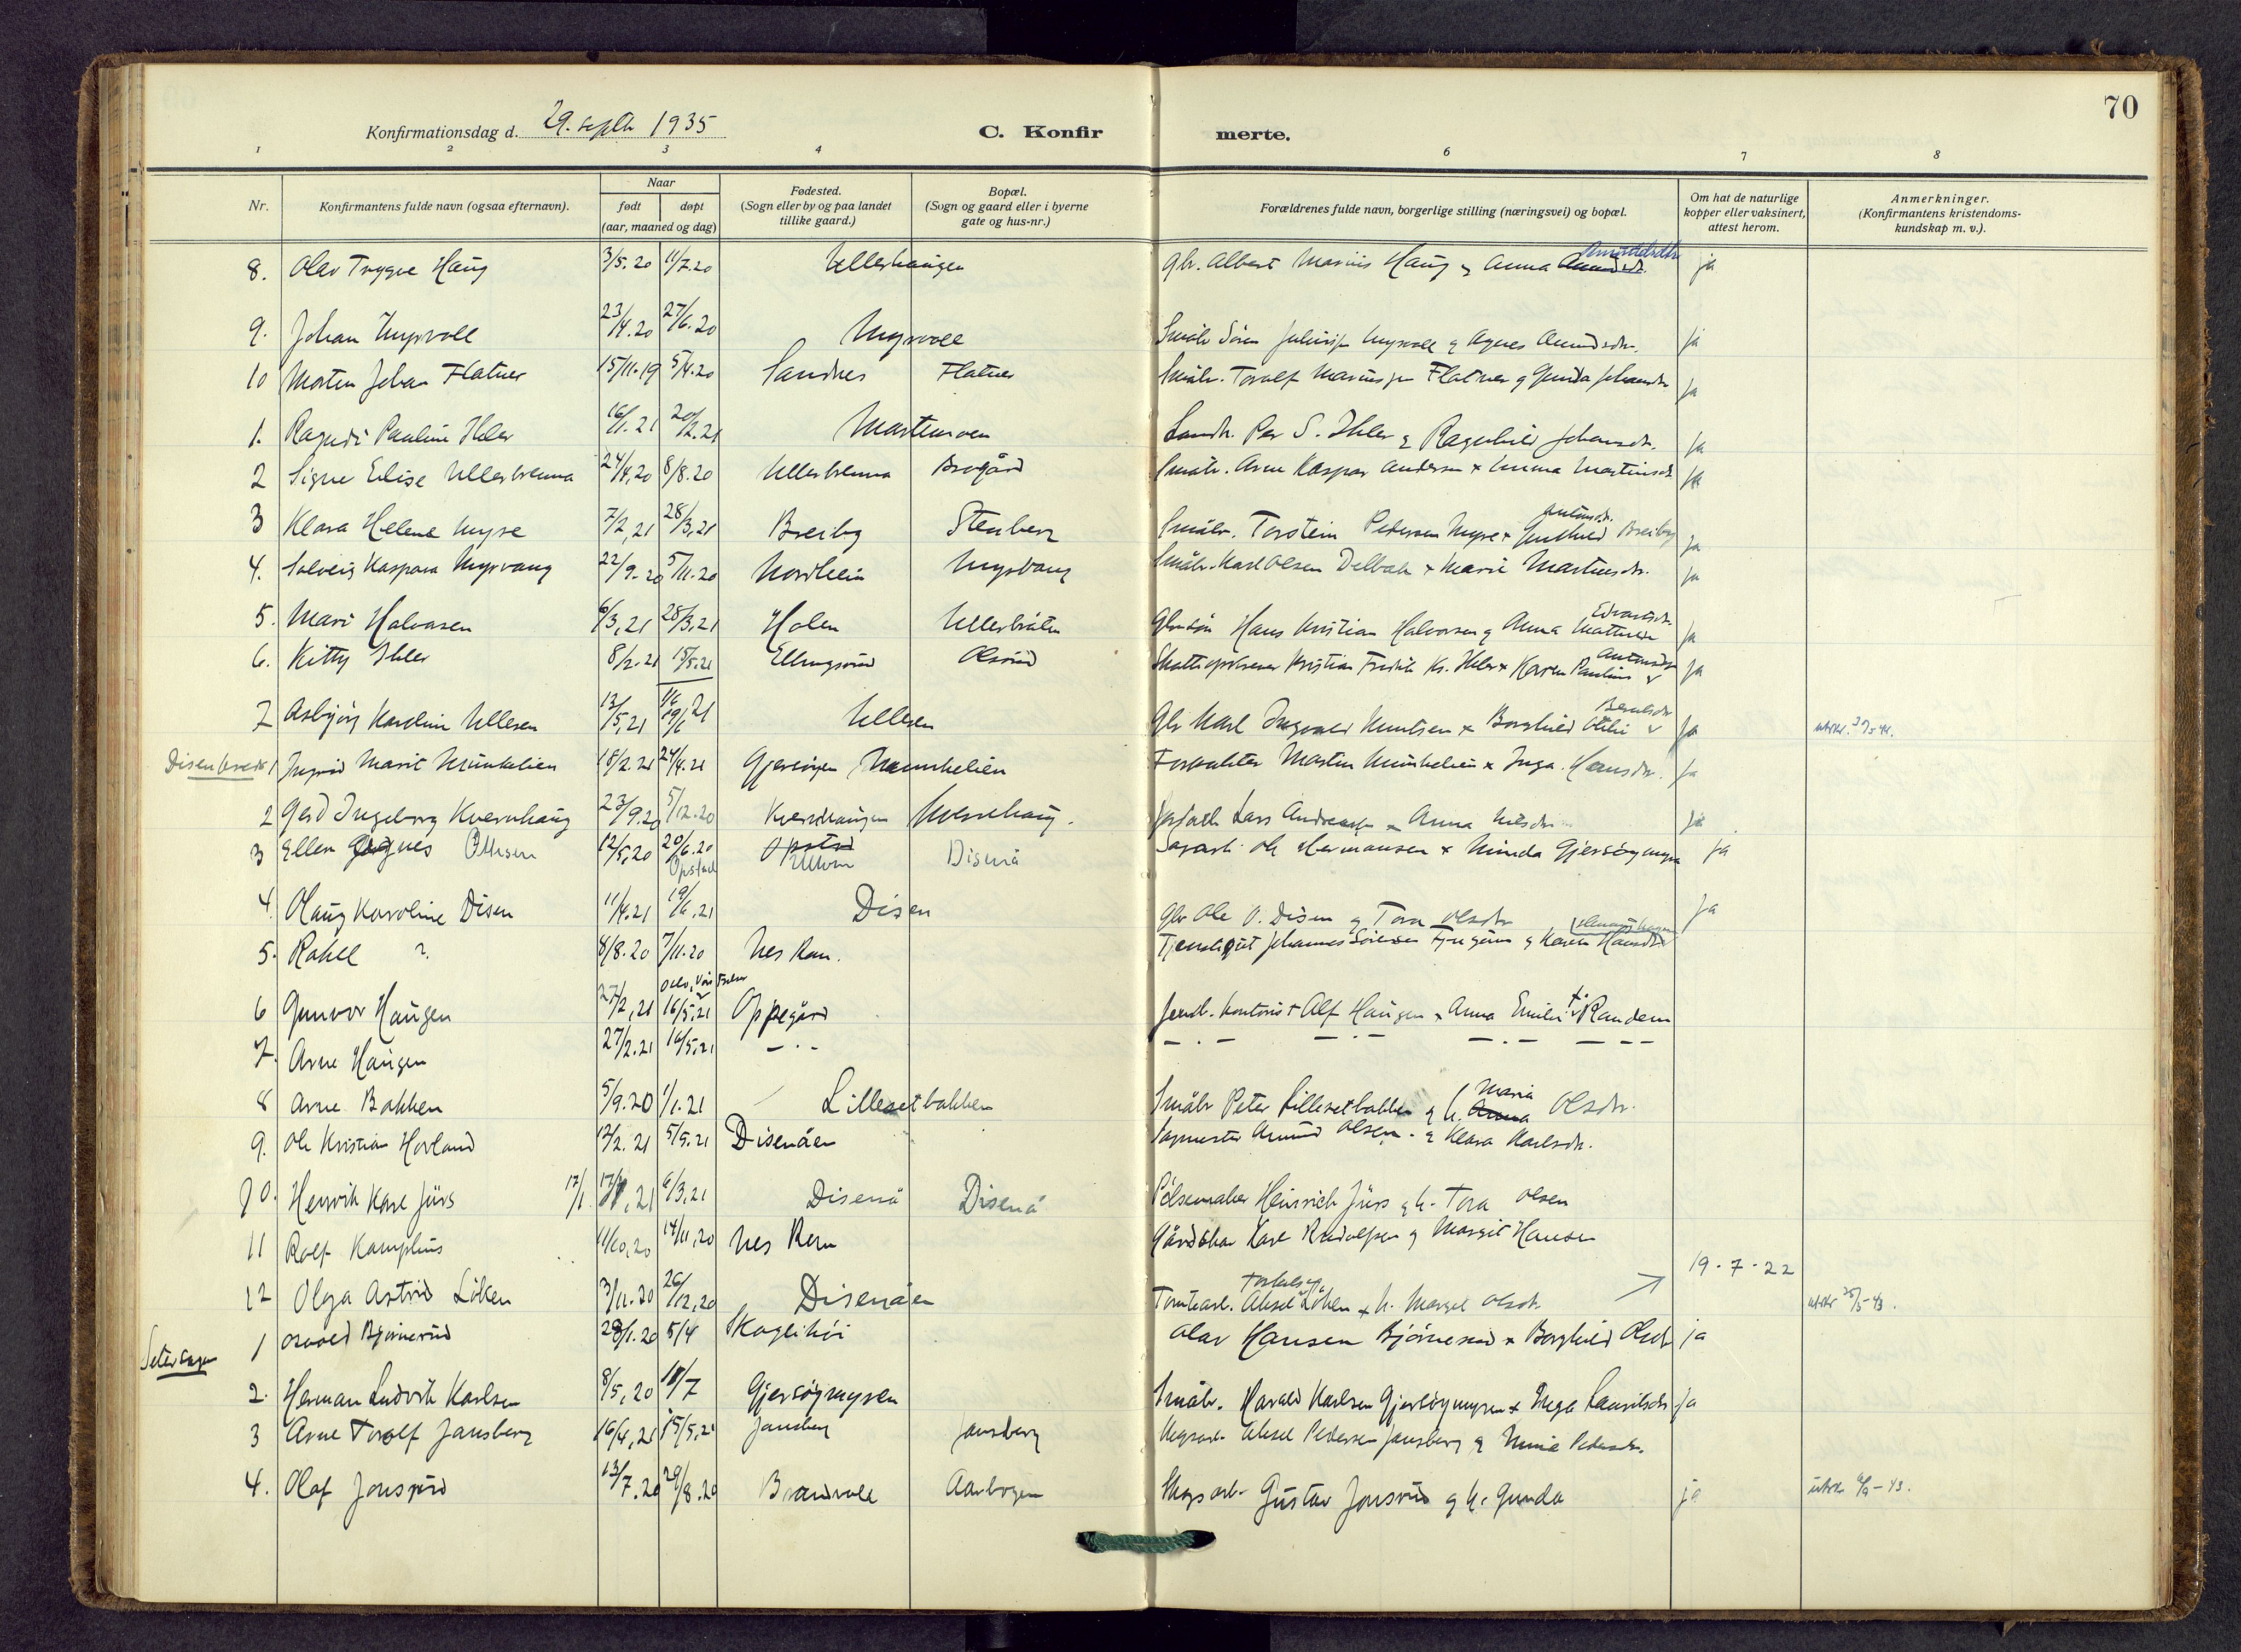 70
Konfirmationsdag d. 29. septbr 1935 C. Konfirmerte.
1 2 3 4 6 7 8
Nr. Konfirmantens fulde navn (ogsaa efternavn). Naar født døpt (aar, maaned og dag) Fødested. (Sogn eller by og paa landet tillike gaard.) Bopæl. (Sogn og gaard eller i byerne gate og hus-nr.) Forældrenes fulde navn, borgerlige stilling (næringsvei) og bopæl. Om hat de naturlige kopper eller vaksinert, attest herom. Anmerkninger. (Konfirmantens kristendomskundskap m. v.).
8. Olav Trygve Haug 3/5.20 11/7.20 Ullerhaugen Gbr. Albert Marius Haug & Anna Amundsdtr ja
9. Johan Myrvoll 23/4.20 27/6.20 Myrvoll Småbr Sören Myrvoll & Agnes Amundsdtr. ja
10 Morten Johan Flatner 15/11.19 5/4.20 Sandnes Flatner Småbr. Toralf Flatner & Gunda Johansdtr ja
1. Ragndi Pauline Ihler 16/1.21 20/2.21 Martinmoen Landh. Per S. Ihler & Ragnhild Johansdtr. ja
2 Signe Elise Ullerbrenna 24/4,20 8/8.20 Ullerbrenna Brogård Småbr. Arne Kaspar Andersen & Emma Martinsdtr ja
3 Klara Helene Myre 7/2,21 28/3,21 Breiby Stenberg Småbr. Torstein Pedersen Myre & Gunhild Antonsdtr. Breiby ja
4. Solveig Kaspara Myrvang 22/9.20 5/11.20 Nordheim Myrvang Småbr. Karl Olsen Delbak & Marie Martinsdtr. ja
5. Mari Halvorsen 6/3,21 28/3,21 Holen Ullerbråten Hans Kristian Halvorsen & Anna Edvardsdtr. ja
6. Kitty Ihler 8/2.21 15/5.21 Ellingsrud Olsrud Skatteopkrever Kristian Fredrik Kr. Ihler & Karen Pauline Antonsdtr ja
7 Asbjörg Karoline Ullesen 13/5,21 19/6 21 Ullesen Gbr Karl Ingvald Knutsen & Borghild Otilie ja
Disenkrets 1 Ingrid Marit Munkelien 18/2.21 24/4.21 Gjersöyen Munkelien Forvalter Martin Munkelien & Inga Hansdtr. ja
2 Gerd Ingeborg Kvernhaug 23/9.20 5/12.20 Kvernhaugen Kvernhaug. Lars Andreassen & Anna Nilsdtr ja
3 Ellen Agnes Ottesen 12/5,20 20/6.20 Opstad Opstad Ullern Disenå Sagarb. Ole Hermansen & Minda Gjersöymyra ja
4. Olaug Karoline Disen 11/4.21 19/6,21 Disen Gbr Ole O. Disen & Tora Olsdtr ja
5. Rakel ? 8/8.20 7/11.20 Nes Rom. Tjenestegut Johannes Sörensen & Karen Hansdtr
6 Gunvor Haugen 27/2,21 Oslo, Vår Frelser 16/5,21 Oppegård Jernb. kontorist Alf Haugen & Anna Emilie f. Randem
7. Arne Haugen 27/2.21 16/5,21 - . - - . - - . - - . - - - -
8 Arne Bakken 5/9.20 1/1.21 Lillesetbakken Småbr Peter Lillesetbakken & h. Maria Anna Olsdtr.
9. Ole Kristian Hovland 12/2.21 5/5.21 Disenåen Sagmester Amund Olsen & Klara Karlsdtr.
10. Henrik Karl Jürs 17/1 17/1,21 6/3,21 Disenå Disenå Pölsemaker Heinrich Jürs & h. Tora Olsen
11 Rolf Kamphus 11/10,20 14/11,20 Nes Rom Karl Rudolfsen & Margit Hansen
12 Olga Astrid Löken 3/11.20 26/12,20 Disenåen Tomtearb. Aksel Torkelsen Löken & h. Margit Olsdtr. 19-7-22 utskr 25/5-43.
Setersogn 1 Osvald Björnerud 28/1.20 5/4 Skoglihöi Olav Hansen Björnerud & Borghild Olsdtr ja
2. Herman Ludvik Karlsen 8/5,20 18/7 Gjersöymyren Småbr. Harald Karlsen Gjersöymyren & Inga Lauritsdtr ja
3 Arne Torolf Jansberg 16/4,21 15/5,21 Jansberg Jansberg Aksel Pedersen Jansberg & Pedersdtr.
4. Olaf Jonsrud 13/7.20 29/8.20 Brandvoll Aarbogen Skogsarb. Gustav Jonsrud & h. Gunda ja